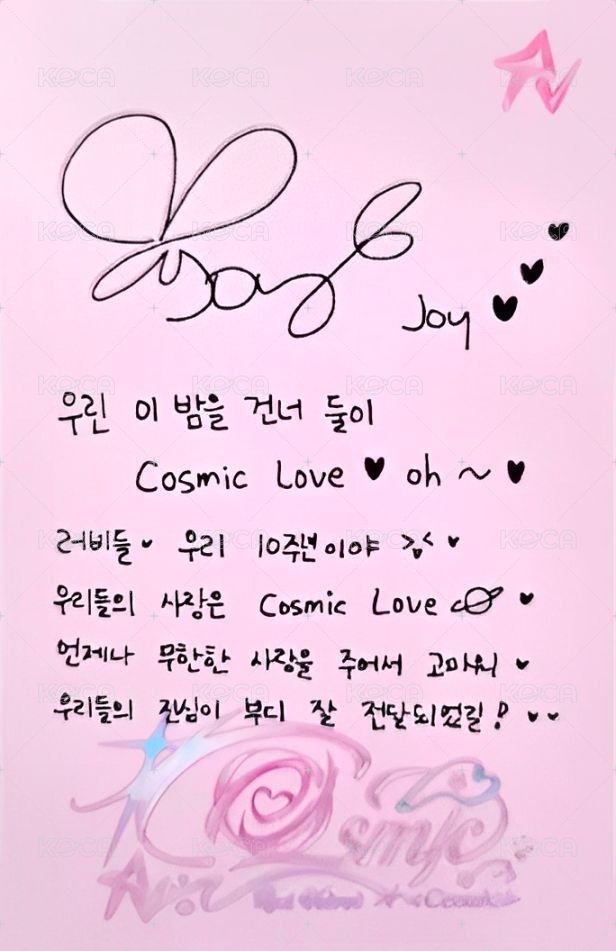 Joy
Joy ♥♥♥
우린 이 밤을 건너 둘이
Cosmic Love ♥ oh ~ ♥
러비들♥ 우리 10주년이야 >ܫ< ♥
우리들의 사랑은 Cosmic Love 🪐 ♥
언제나 무한한 사랑을 주어서 고마워 ♥
우리들의 진심이 부디 잘 전달되었길! ♥♥
Cosmic